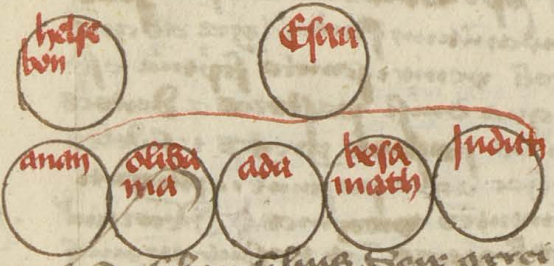 helse
bon
Esau
anan
oliba
ma
ada
besa
math
Judith
filius